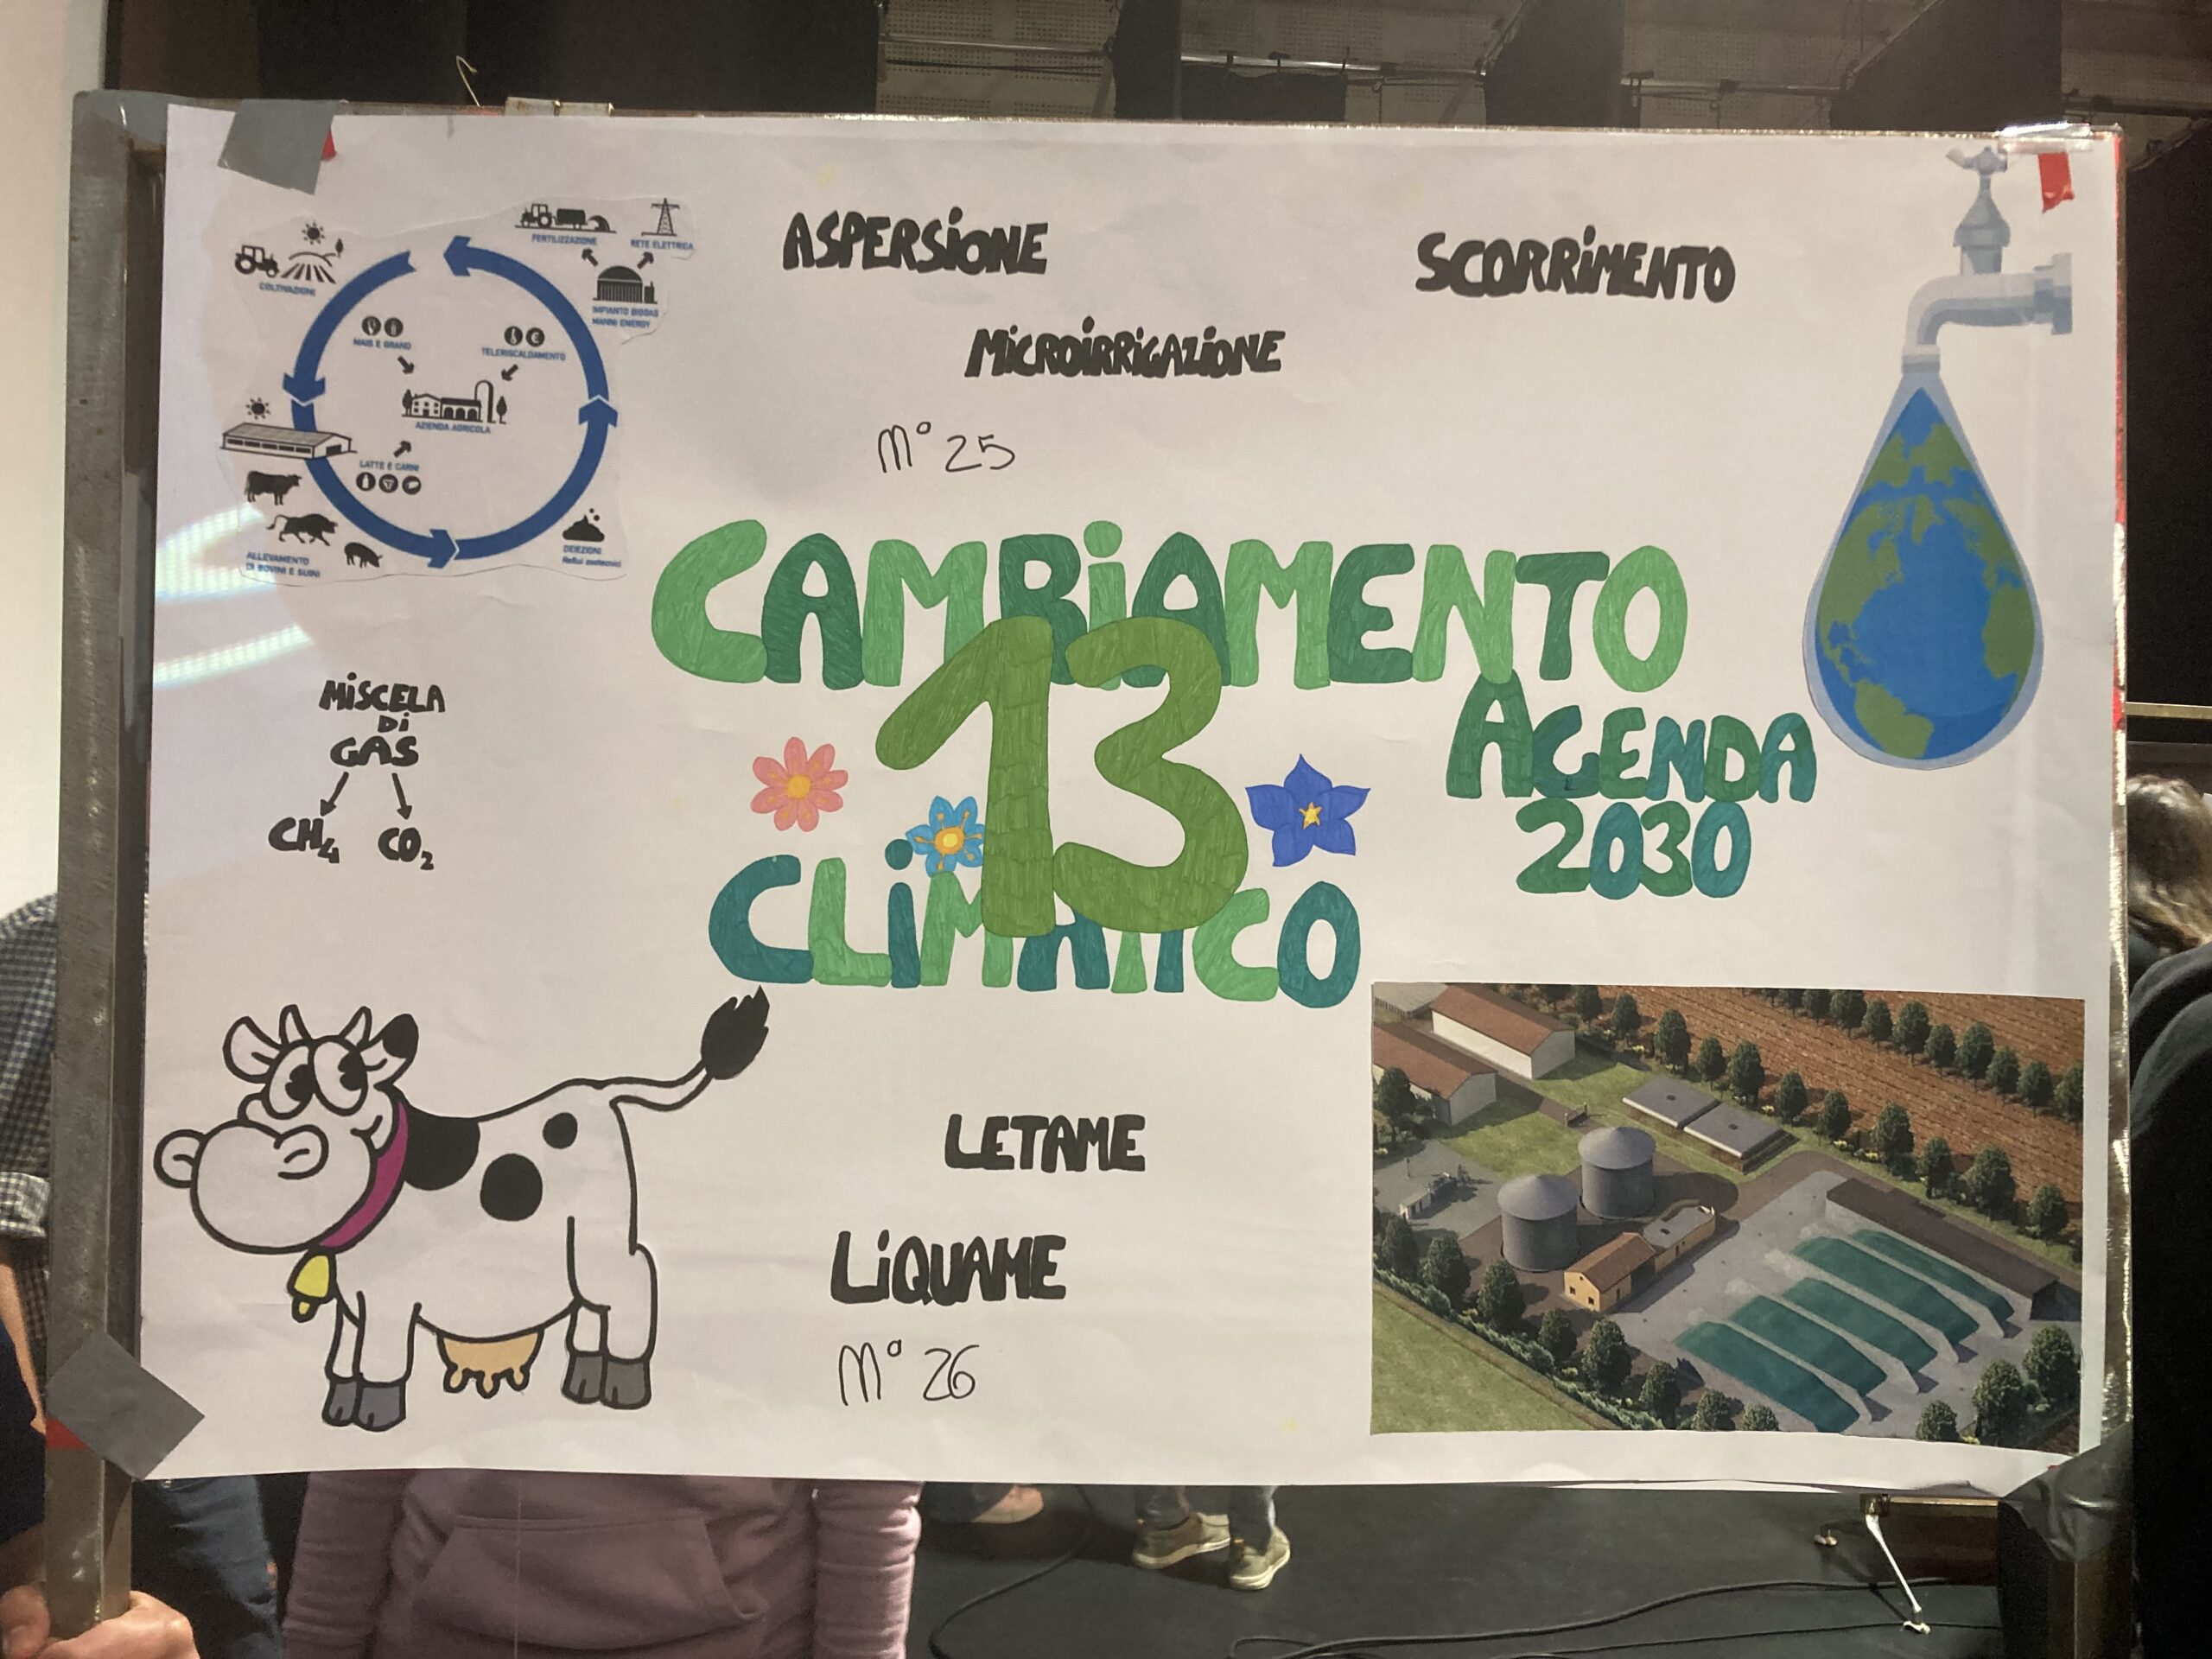 ASPERSIONE
SCORRIMENTO
MICROIRRIGAZIONE
N° 25
FERTILIZZAZIONE
RETE ELETTRICA
COLTIVAZIONI
IMPIANTO BIOGAS
MANNI ENERGY
MAIS E GRANO
TELERISCALDAMENTO
AZIENDA AGRICOLA
LATTE E CARNI
ALLEVAMENTO
DI BOVINI E SUINI
DEIEZIONI
Reflui zootecnici
CAMBIAMENTO
13
CLIMATICO
AGENDA
2030
MISCELA
DI
GAS
CH4 CO2
LETAME
LIQUAME
N° 26